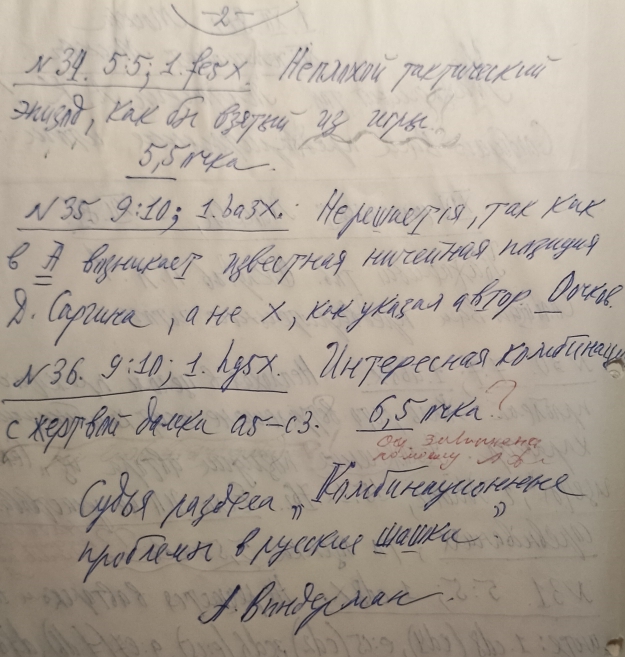 -2-
№34. 5:5; 1.fe5X. Неплохой тактический
эпизод, как бы взятый из игры.
5,5 тчка.
№35 9:10; 1.ba3X. Не решается, так как
в А возникает известная ничейная позиция
Д. Саргина, а не X, как указал автор. 0 очков.
№36. 9:10; 1.hg5X. Интересная комбинация
с жертвой дамки a5-c3. 6,5 тчка.?
оц. завышена
по-моему.
Судья раздела „Комбинационные
проблемы в русские шашки”
А. Виндерман.